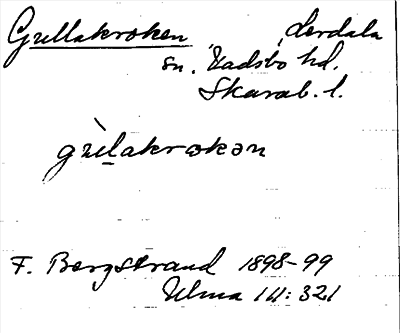 Grullakroken, Lerdala
sn. Vadsbo hd.
Skarab. l.
grùlakrokən
F. Bergstrand 1898-99
Ulma 141:321